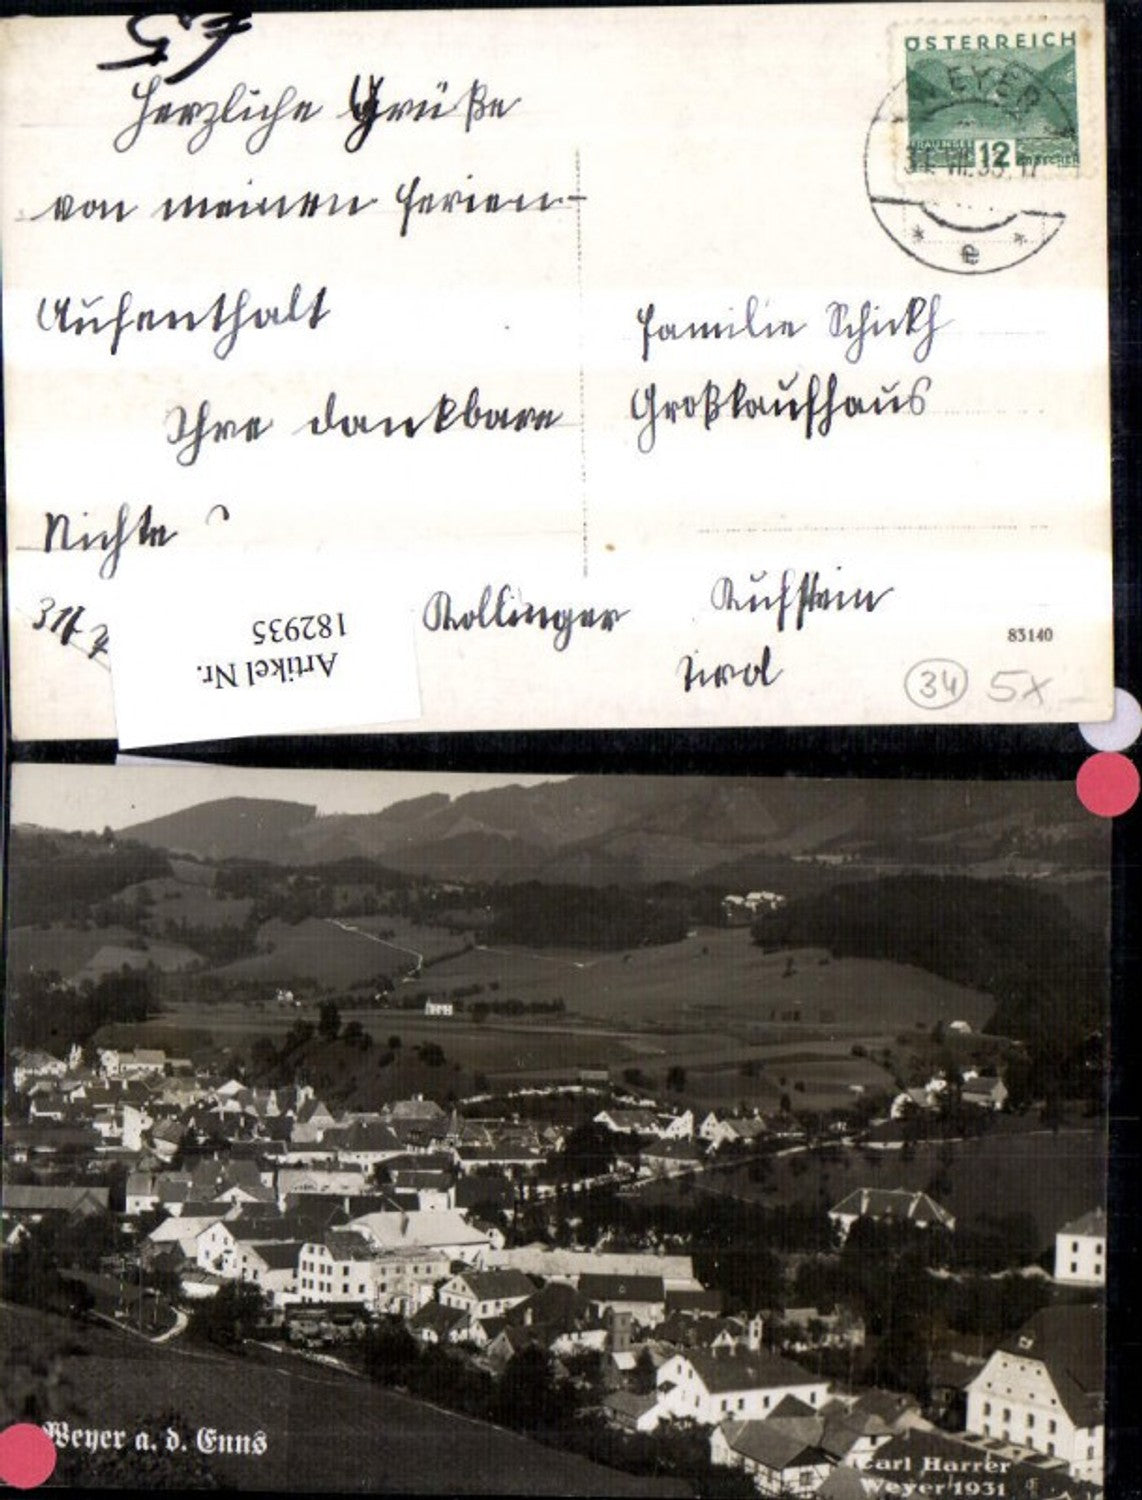 G7
Herzliche Grüße
von meinen Ferien-
Aufenthalt
Ihre dankbare
Nichte
31/7
Kollinger
Artikel Nr.
182935
ÖSTERREICH
12
WEYER
31. VII. 33. 17
* e *
Familie Schickh
Großkaufhaus
Kufstein
Tirol
83140
34 5x
Weyer a. d. Enns
Carl Harrer
Weyer 1931